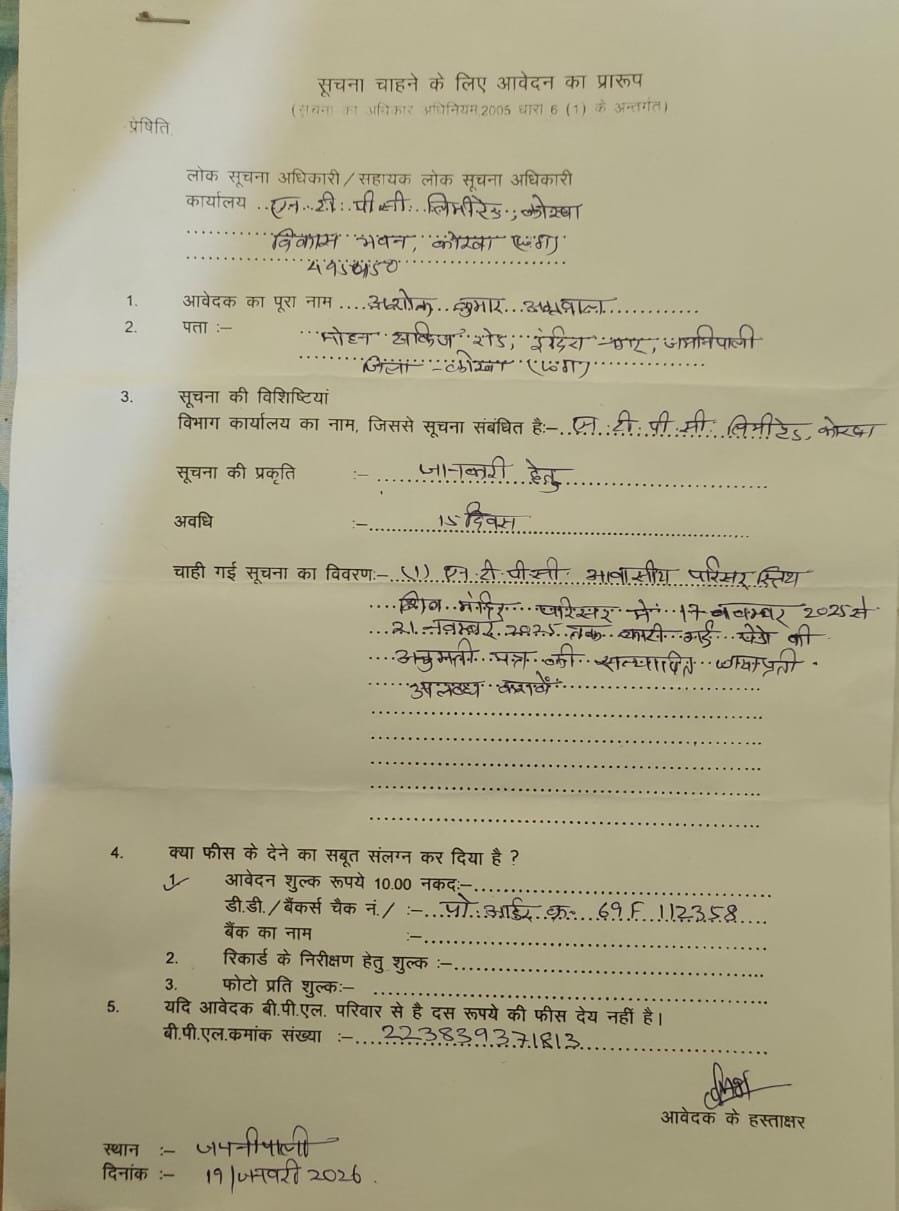 सूचना चाहने के लिए आवेदन का प्रारूप
(सूचना का अधिकार अधिनियम,2005 धारा 6 (1) के अन्तर्गत)
प्रेषिति
लोक सूचना अधिकारी/सहायक लोक सूचना अधिकारी
कार्यालय एन. टी. पी. सी. लिमीटेड, कोरबा
विकास भवन, कोरबा (छ.ग)
495450
1. आवेदक का पूरा नाम अशोक कुमार अग्रवाल
2. पता :- मोहन टाकिज रोड, इंदिरा नगर, जमनिपाली
जिला - कोरबा (छ.ग)
3. सूचना की विशिष्टियां
विभाग कार्यालय का नाम, जिससे सूचना संबंधित है:- एन. टी. पी. सी. लिमीटेड, कोरबा
सूचना की प्रकृति :- जानकारी हेतु
अवधि :- 15 दिवस
चाही गई सूचना का विवरण:- (1) एन. टी. पी. सी. आवासीय परिसर स्तिथ
शिव मंदिर परिसर में 17 नवम्बर 2025 से
21 नवम्बर 2025 तक काटी गई पेडो की
अनुमती पत्र की सत्यापित छायाप्रती
उपलब्ध करावें
4. क्या फीस के देने का सबूत संलग्न कर दिया है ?
1 आवेदन शुल्क रूपये 10.00 नकद:-
डी.डी./बैंकर्स चैक नं./ :- पो. आर्डर क्र. 69F 112358
बैंक का नाम :-
2. रिकार्ड के निरीक्षण हेतु शुल्क :-
3. फोटो प्रति शुल्क:-
5. यदि आवेदक बी.पी.एल. परिवार से है दस रूपये की फीस देय नहीं है।
बी.पी.एल.कमांक संख्या :- 223839371813
आवेदक के हस्ताक्षर
स्थान :- जमनीपाली
दिनांक :- 19/जनवरी 2026.